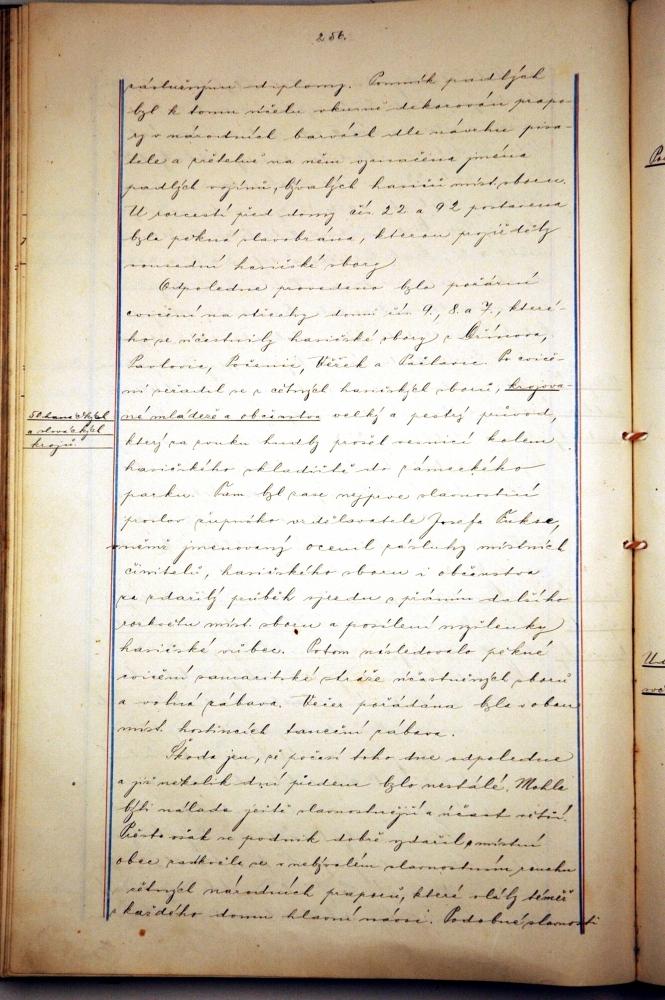 256.
záslužnými diplomy. Pomník padlých
byl k tomu účelu vkusně dekorován prapo-
ry v národních barvách dle návrhu pisa-
tele a zřetelně na něm vyznačena jména
padlých vojínů, bývalých hasičů míst. sboru.
U rozcestí před domy čís. 22 a 92 postavena
byla pěkná slavobrána, kterou projížděly
sousední hasičské sbory.
Odpoledne provedeno bylo požární
cvičení na střechy domů čís. 9., 8. a 7., které-
ho se účastnily hasičské sbory z
Pavlovic, Počenic, Věžek a Pačlavic. Po cviče-
ní seřadil se z četných hasičských sborů, krojova-
né mládeže a občanstva velký a pestrý průvod,
50 hanáckých
a slováckých
krojů.
který za zvuku hudby prošel vesnicí kolem
hasičského skladiště do zámeckého
parku. Tam byl zase nejprve slavnostní
proslov župního vzdělavatele Josefa Fukse,
v němž jmenovaný ocenil zásluhy místních
činitelů, hasičského sboru i občanstva
za zdařilý průběh sjezdu s přáním dalšího
rozkvětu míst. sboru a posílení myšlenky
hasičské vůbec. Potom následovalo pěkné
cvičení samaritské stráže účastněných sborů
a volná zábava. Večer pořádána byla v obou
míst. hostincích taneční zábava.
Škoda jen, že počasí toho dne odpoledne
a již několik dní předem bylo nestálé. Mohla
býti nálada ještě slavnostnější a účast větší.
Přesto však se podnik dobře vydařil, místní
obec zaskvěla se v nebývalém slavnostním rouchu
četných národních praporů, které vlály téměř
z každého domu hlavní návsi. Podobné slavnosti